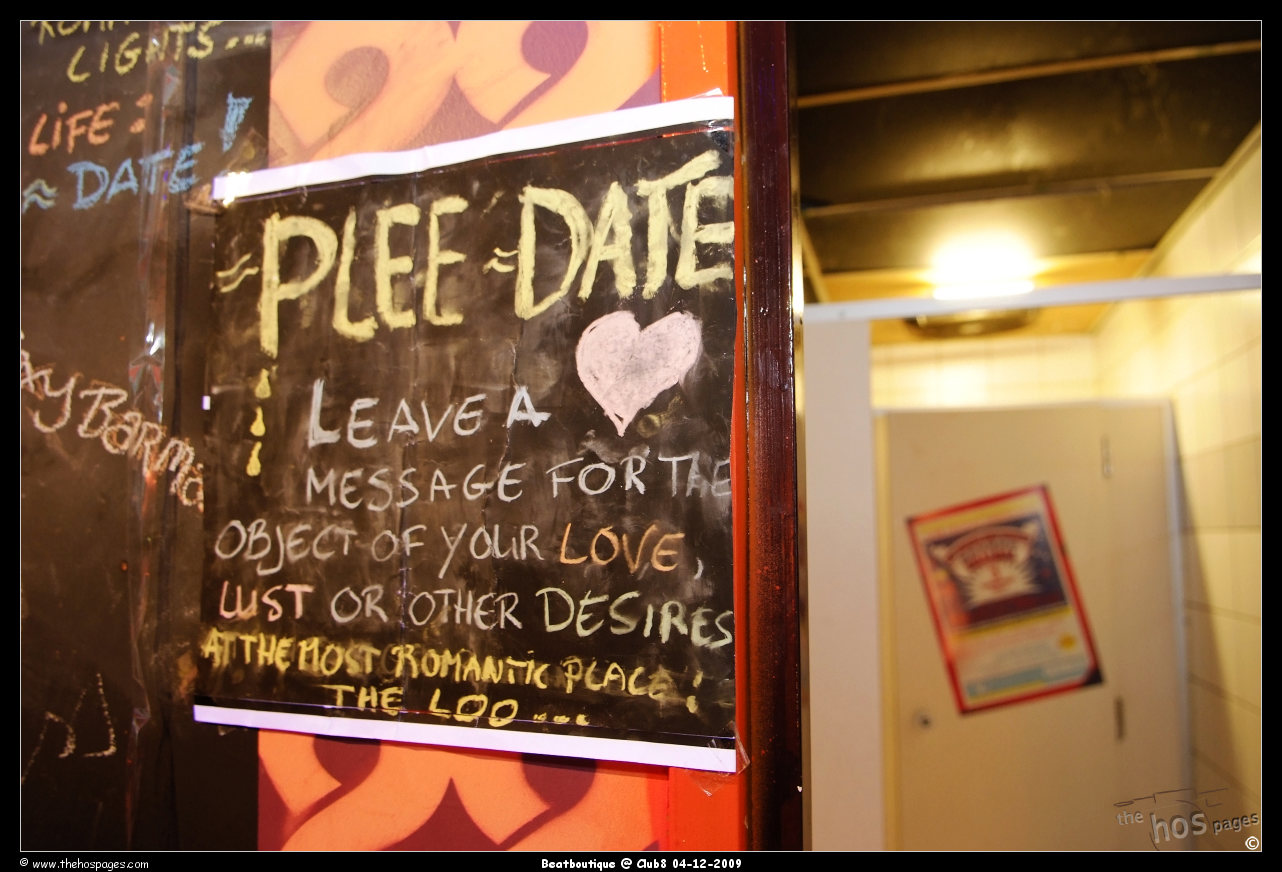 LIGHTS...
LIFE:
≈ DATE!
≈PLEE≈DATE
LEAVE A
MESSAGE FOR THE
OBJECT OF YOUR LOVE,
LUST OR OTHER DESIRES
AT THE MOST ROMANTIC PLACE:
THE LOO...
the hos pages
©
© www.thehospages.com
Beatboutique @ Club8 04-12-2009